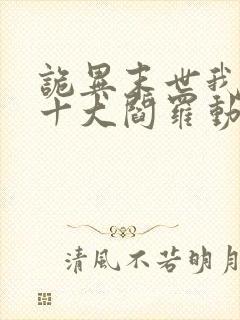 詭異末世我
十大閻羅動
清風不若明月